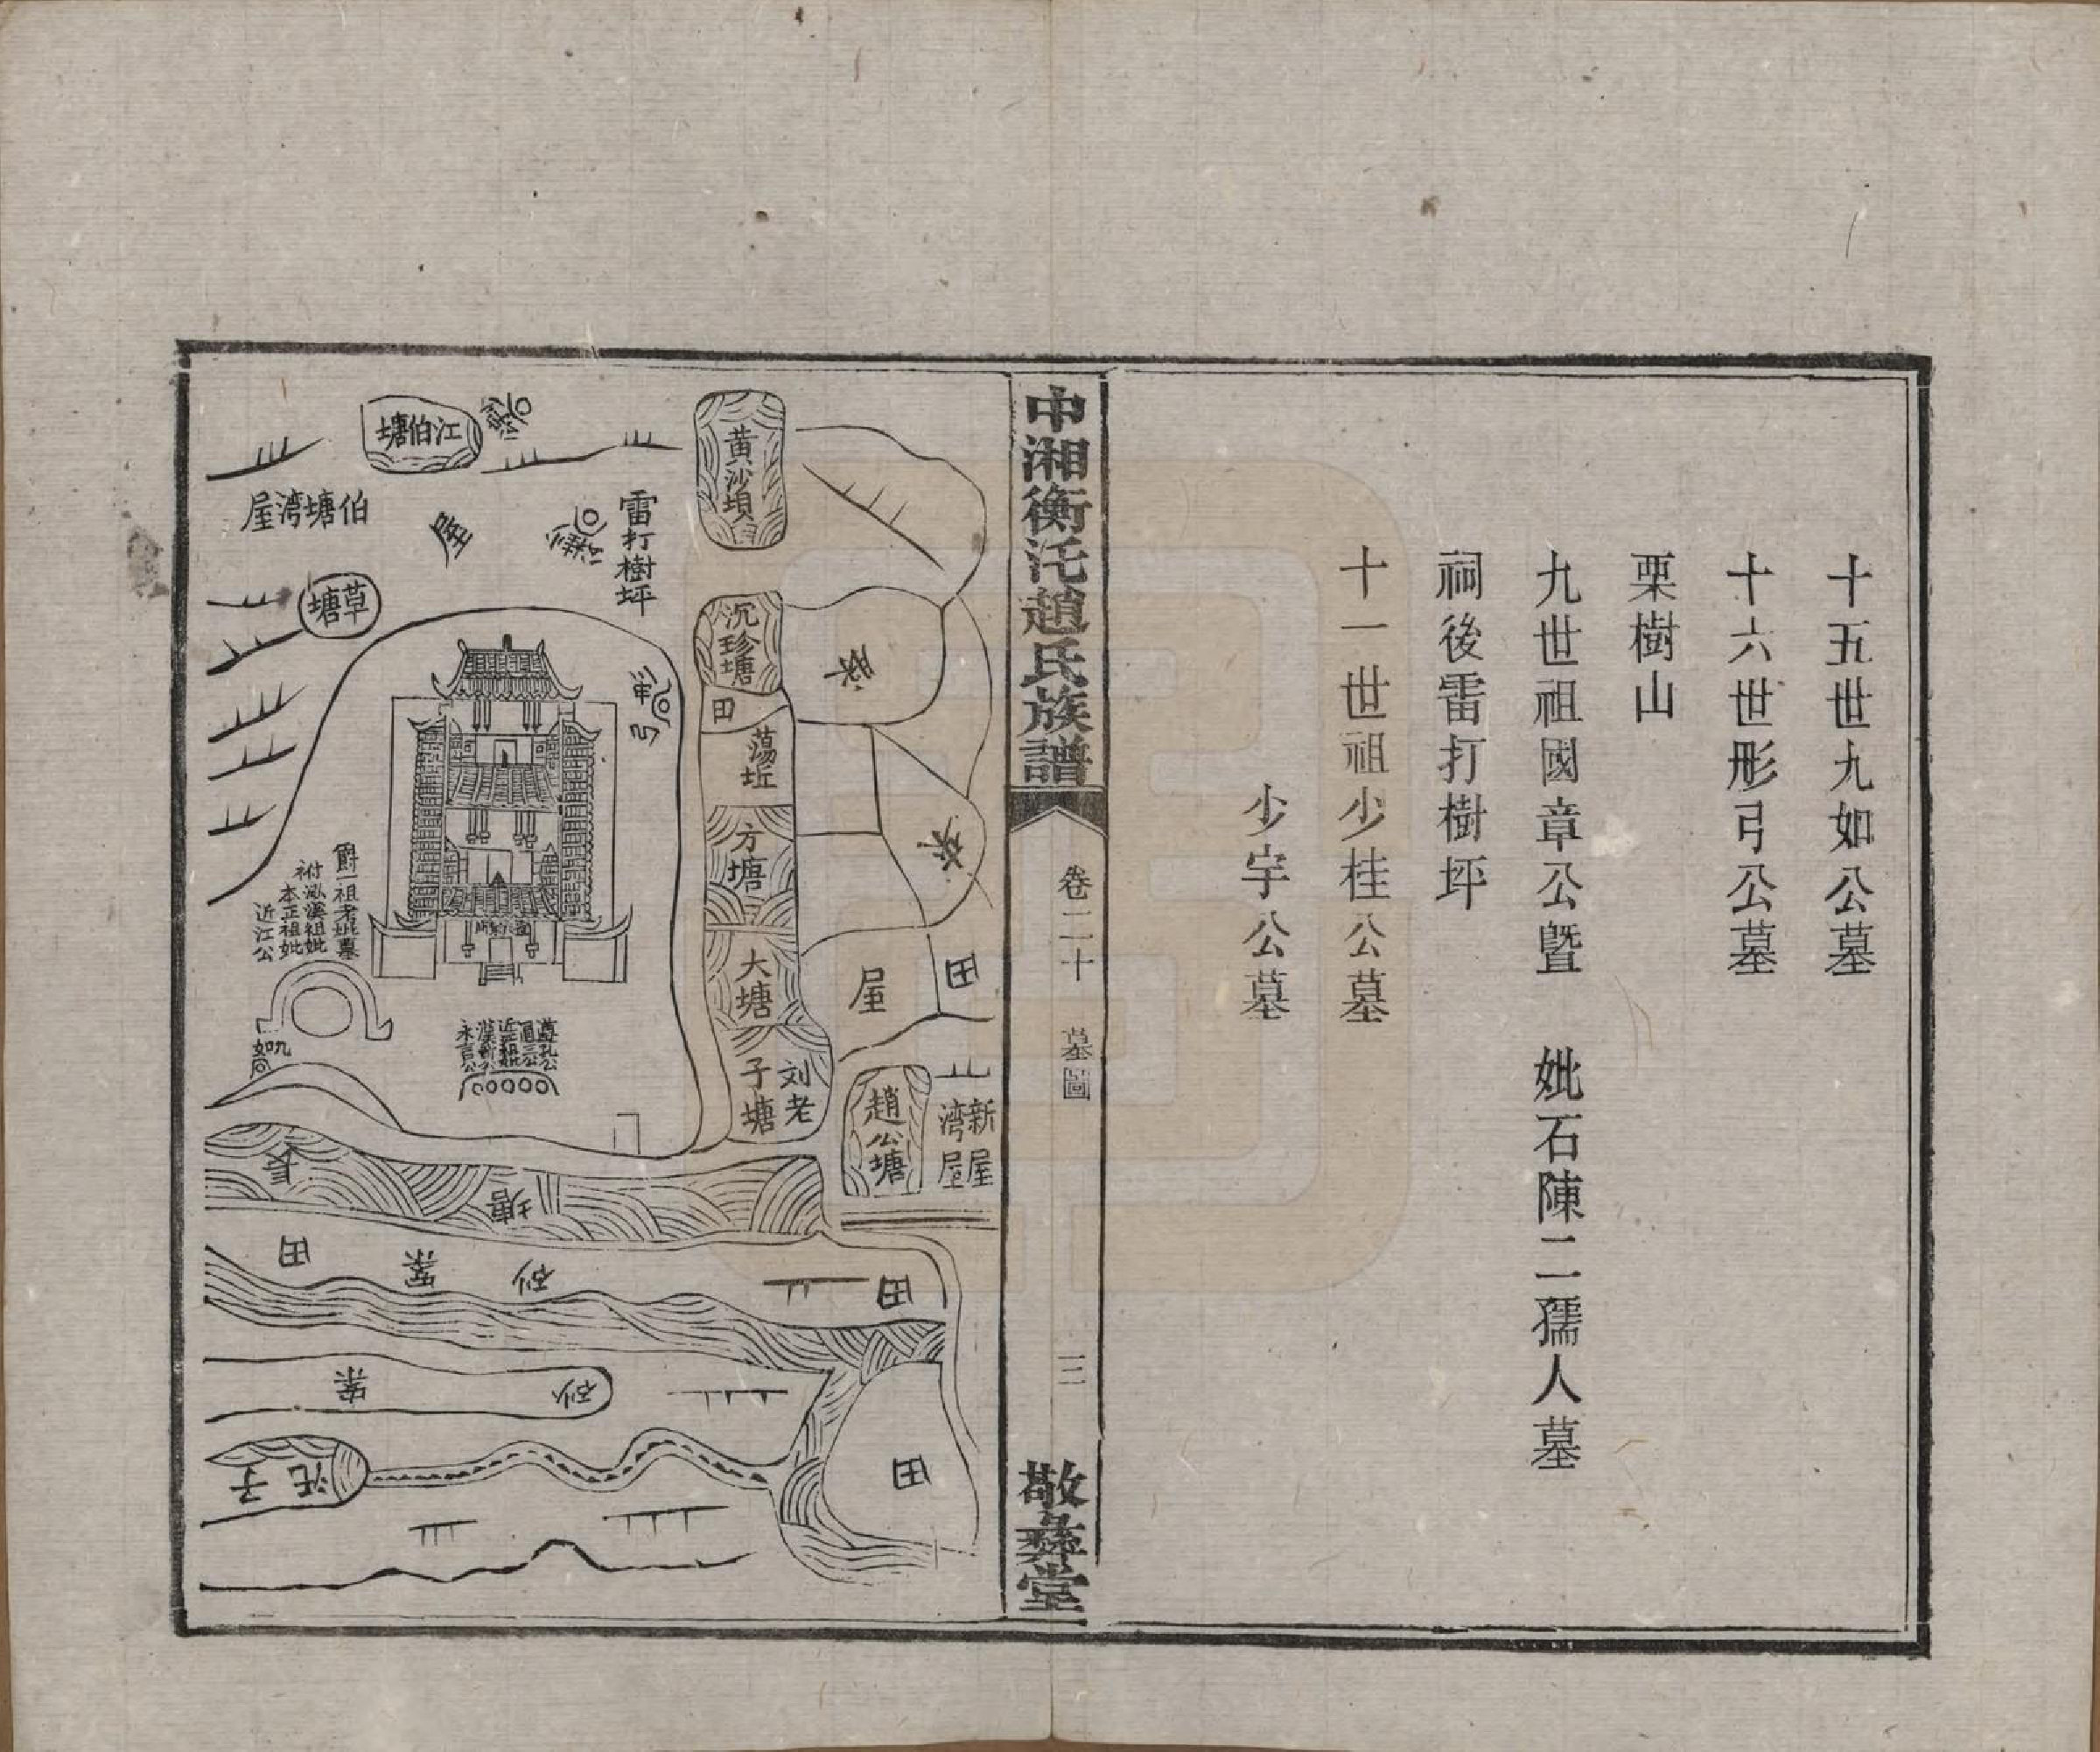 十五世九如公墓
十六世彤弓公墓
栗樹山
九世祖國章公暨　妣石陳二孺人墓
祠後雷打樹坪
十一世祖少桂公墓
少宇公墓
中湘衡汑趙氏族譜
卷二十
墓圖
三
敬彝堂
黄沙垻
沉珍塘
田
蕩坵
方塘
大塘
刘老
子塘
屋
田
趙公塘
新屋
湾屋
雷打樹坪
江伯塘
伯塘湾屋
屋
草塘
爵一祖老妣墓
祔泓溪祖妣
本正祖妣
近江公
九如公
長塘
田
案
砂
田
案
砂
汑子
田